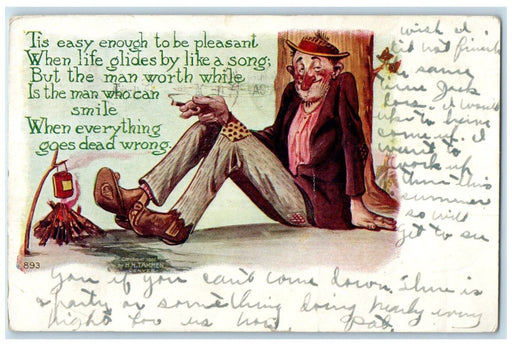 Tis easy enough to be pleasant
When life glides by like a song;
But the man worth while
Is the man who can
smile
When everything
goes dead wrong.
893
COPYRIGHT
BY H.H. TAMMEN
DENVER
wish I
did not finish
same
time Jack
does. I would
like to being
come up. I
want to
work up
there this
summer
so will
get to see
you if you can't come down. there is
a party or something doing nearly every
night for us now. Pal.